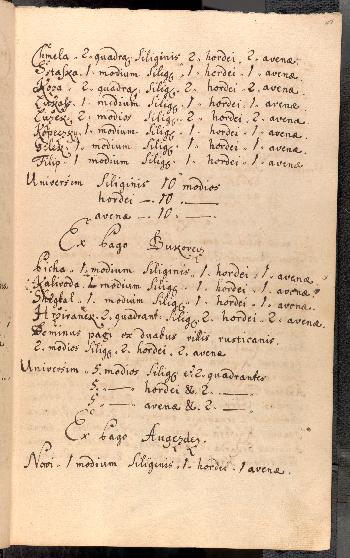 Chmela . 2. quadra. Siliginis 2. hordei . 2. avenæ.
1. modium Silig. 1. hordei . 1. avenæ
Koza . 2. quadra. Silig. 2. hordei . 2. avenæ.
1. modium Silig. 1. hordei . 1. avenæ
2. modios Silig. 2. hordei . 2. avenæ
1. modium . Silig. 1. hordei . 1. avenæ
1. modium . Silig. 1. hordei . 1. avenæ.
Filip . 1. modium Silig. 1. hordei . 1. avenæ
Universim Siliginis 10 modios
hordei — 10. —.
avenæ — 10. —.
Ex bago
1. modium Siliginis . 1. hordei . 1. avenæ.
Kalivoda . modium Silig. 1. hordei . 1. avenæ.
1. modium Silig. 1. hordei . 1. avenæ.
2. quadrant. Silig. 2. hordei . 2. avenæ.
Dominus pagi ex duabus rusticanis.
2. modios Silig. 2. hordei . 2. avenæ
Universim . 5. modios Silig. et 2. quadrantes
5. — hordei &. 2. —.
5. — avenæ &. 2. —.
Ex bago Augezdez.
Nowi . 1 modium Siliginis . 1. hordei . 1 avenæ.